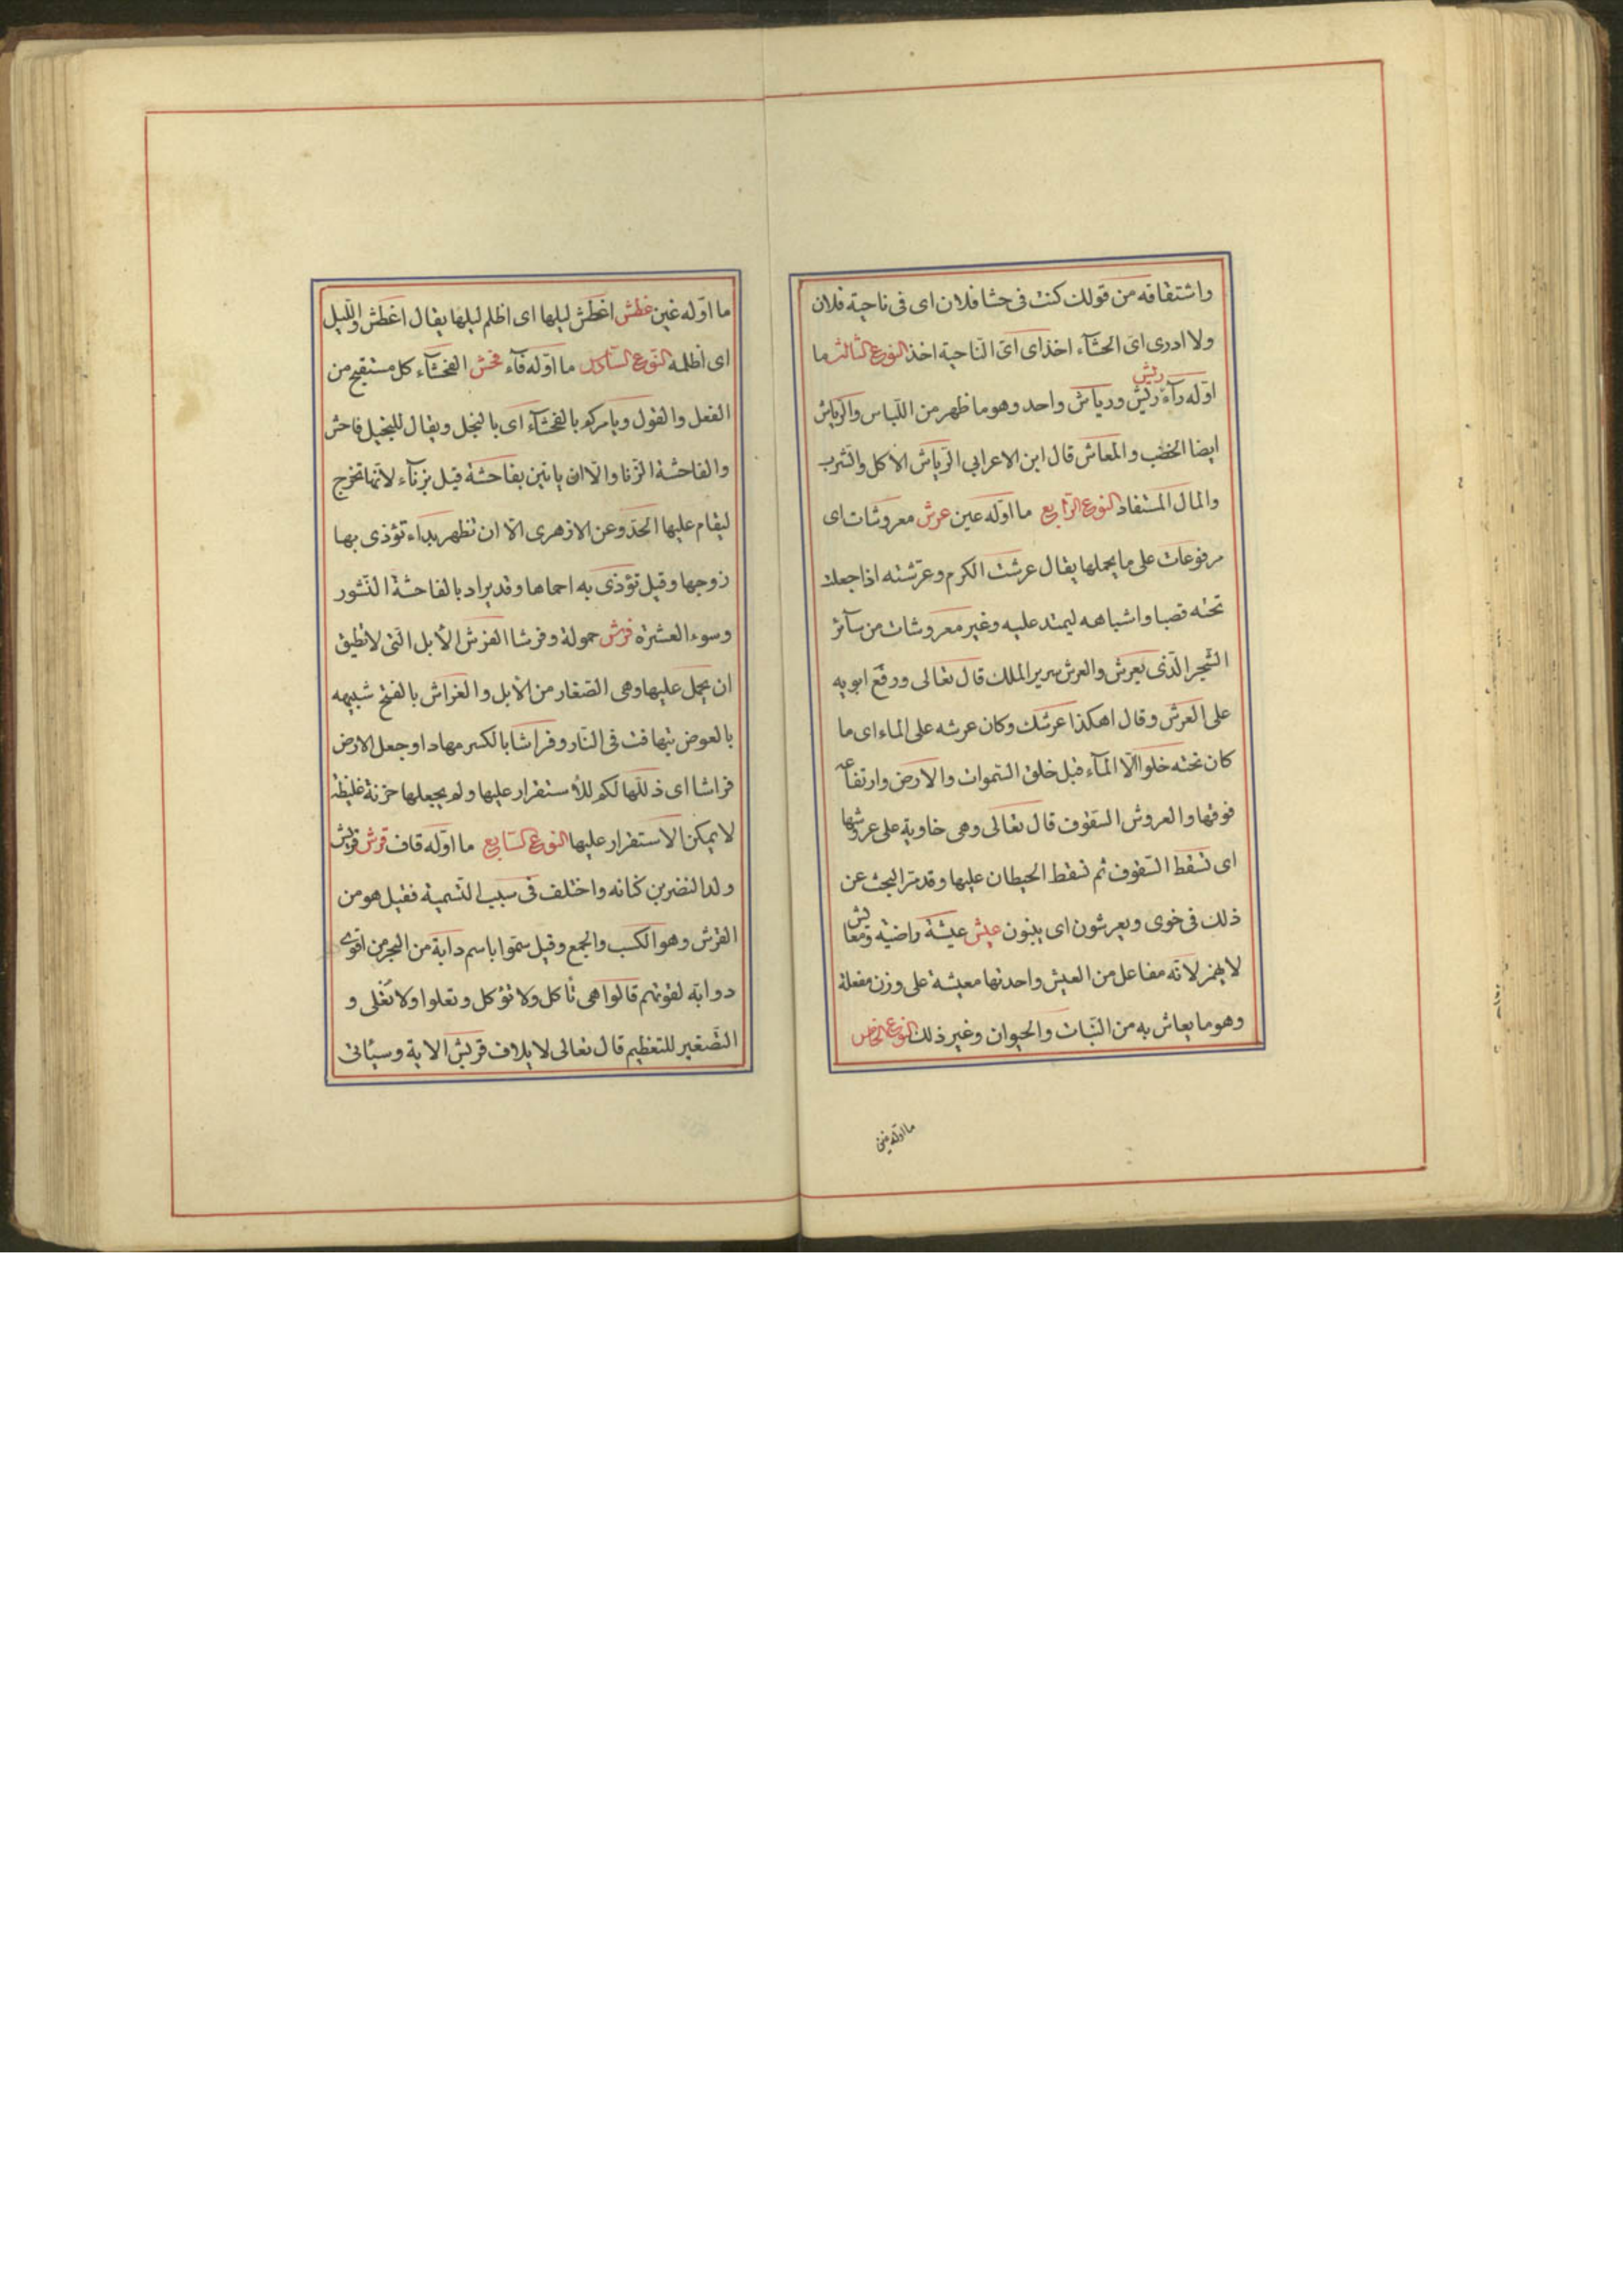 واشتقاقه من قولك كنت فى حشا فلان اى فى ناحية فلان
ولا ادرى اى الحشآء اخذ اى اى الناحية اخذ النوع الثالث ما
ريش
اوله رآء ريش ورياش واحد وهو ما ظهر من اللباس والرياش
ايضا الخصب والمعاش قال ابن الاعرابى الرياش الاكل والشرب
والمال المستفاد النوع الرابع ما اوله عين عرش معروشات اى
مرفوعات على ما يحملها يقال عرشت الكرم وعرشته اذا جعلت
تحته قصبا واشباهه ليمتد عليه وغير معروشات من سآئر
الشجر الذى يعرش والعرش سرير الملك قال تعالى ورفع ابويه
على العرش وقال اهكذا عرشك وكان عرشه على الماء اى ما
كان تحته خلوا الا المآء قبل خلق السموات والارض وارتفاعه
فوقها والعروش السقوف قال تعالى وهى خاوية على عروشها
اى تسقط السقوف ثم تسقط الحيطان عليها وقد مر البحث عن
ذلك فى خوى ويعرشون اى يبنون عيش عيشة راضية ومعايش
لا يهمز لانه مفاعل من العيش واحدتها معيشة على وزن مفعلة
وهو ما يعاش به من النبات والحيوان وغير ذلك النوع الخامس
ما اوله غين
ما اوله غين غطش اغطش ليلها اى اظلم ليلها يقال اغطش الليل
اى اظلمه النوع السادس ما اوله فآء فحش الفحشآء كل مستقبح من
الفعل والقول ويامركم بالفحشآء اى بالبخل ويقال للبخيل فاحش
والفاحشة الزنا والا ان ياتين بفاحشة قيل بزنآء لانها تخرج
ليقام عليها الحد وعن الازهرى الا ان تظهر بذاء تؤذى بها
زوجها وقيل تؤذى به احماها وقد يراد بالفاحشة النشور
وسوء العشرة فرش حمولة وفرشا الفرش الابل التى لا تطيق
ان يحمل عليها وهى الصغار من الابل والفراش بالفتح شبيهه
بالعوض تتهافت فى النار وفراشا بالكسر مهادا وجعل الارض
فراشا اى ذللها لكم للاستقرار عليها ولم يجعلها حزنة غليظة
لا يمكن الاستقرار عليها النوع السابع ما اوله قاف قرش قريش
ولد النضر بن كنانه واختلف فى سبب التسمية فقيل هو من
القرش وهو الكسب والجمع وقيل سموا باسم دابة من البحر من اقوى
دوابه لقوتهم قالوا هى تأكل ولا تؤكل وتعلوا ولا تغلى و
التصغير للتعظيم قال تعالى لايلاف قريش الاية وسيأتى